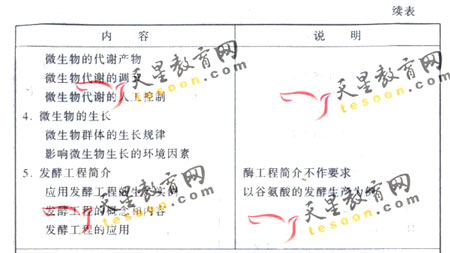 续表
内 容 说 明
微生物的代谢产物
微生物代谢的调
微生物代谢的人工控制
4. 微生物的生长
微生物群体的生长规律
影响微生物生长的环境因素
5. 发酵工程简介 酶工程简介不作要求
应用发酵工程的生产实例 以谷氨酸的发酵生产为例
发酵工程的概念和内容
发酵工程的应用
天星教育网
tesoon.com
天星教育网
tesoon.com
天星教育网
tesoon.com
天星教育网
tesoon.com